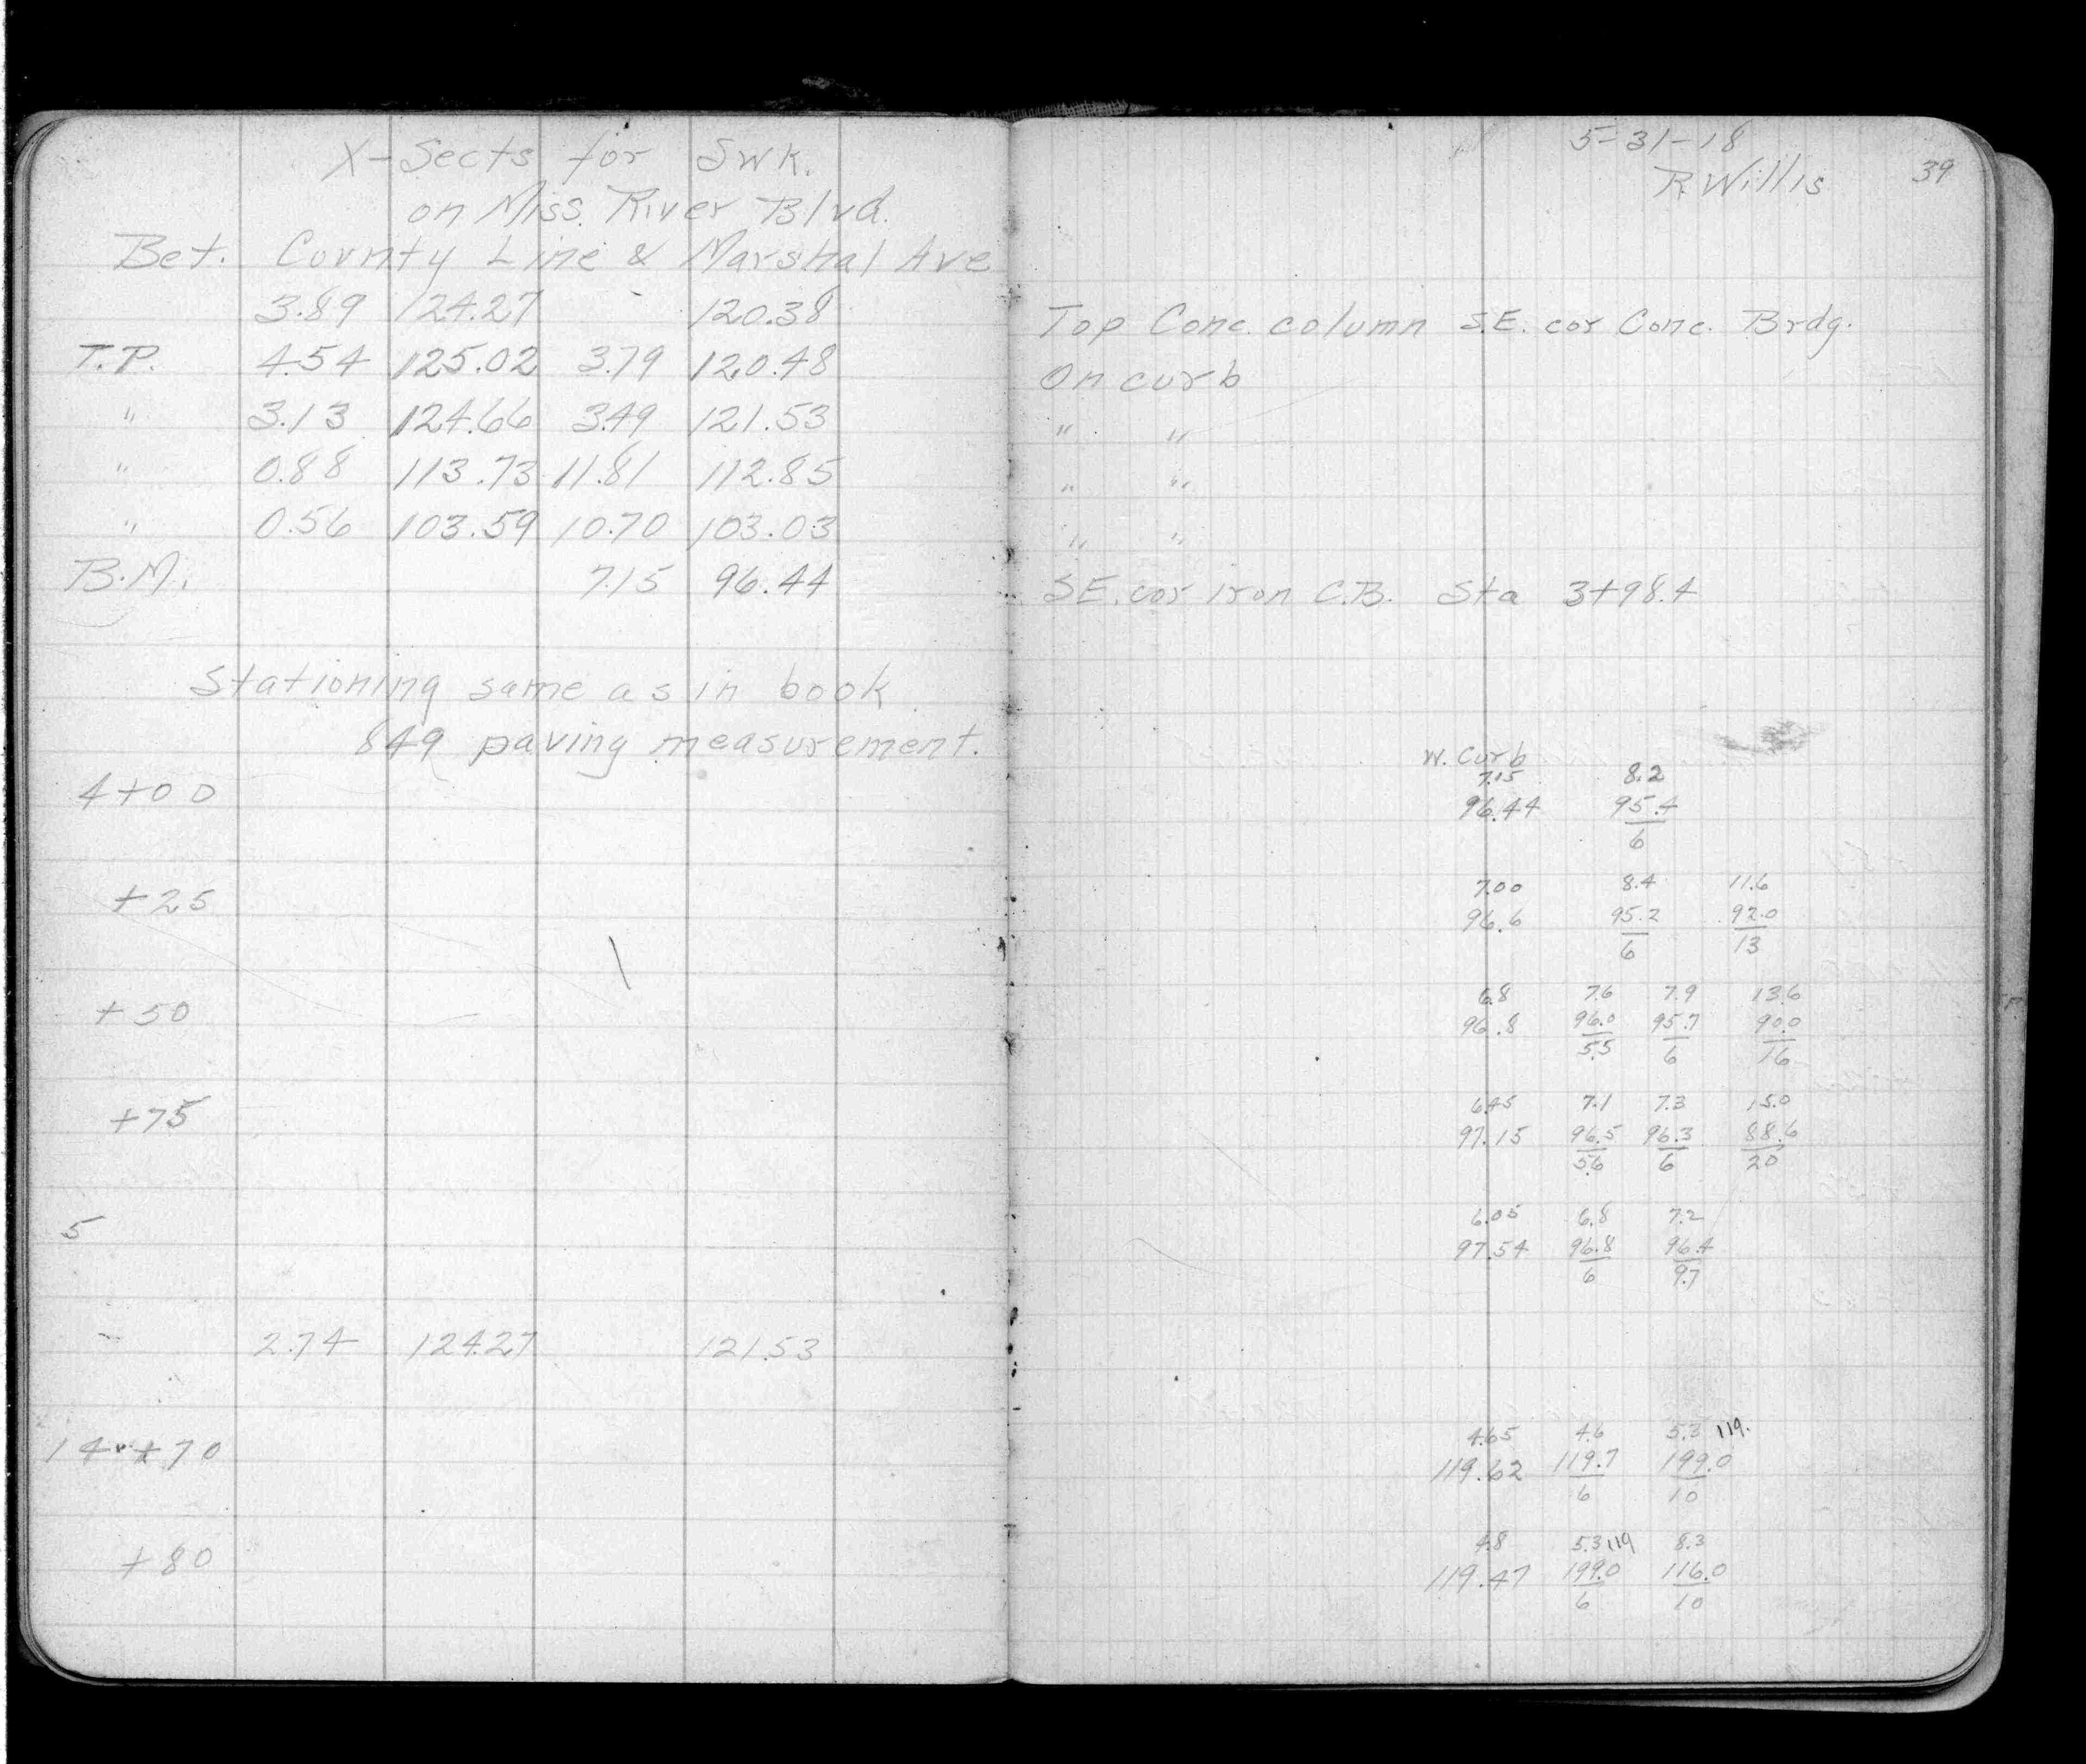 X-Sects for Swk.
on Miss. River Blvd.
Bet. County Line & Marshal Ave
3.89 124.27 - 120.38
T.P. 4.54 125.02 3.79 120.48
" 3.13 124.66 3.49 121.53
" 0.88 113.73 11.81 112.85
" 0.56 103.59 10.70 103.03
B.M. 7.15 96.44
Stationing same as in book
849 paving measurement.
4+00
+25
+50
+75
5
2.74 124.27 121.53
14+70
+80
5-31-18
R. Willis
39
Top Conc. column S.E. cor Conc. Brdg.
On curb
" "
" "
" "
S.E. cor iron C.B. Sta 3+98.4
W. Curb
7.15 8.2
96.44 95.4
6
7.00 8.4 11.6
96.6 95.2 92.0
6 13
6.8 7.6 7.9 13.6
96.8 96.0 95.7 90.0
5.5 6 16
6.45 7.1 7.3 15.0
97.15 96.5 96.3 88.6
5.6 6 20
6.05 6.8 7.2
97.54 96.8 96.4
6 9.7
4.65 4.6 5.3 119.
119.62 119.7 199.0
6 10
4.8 5.3 119 8.3
119.47 199.0 116.0
6 10